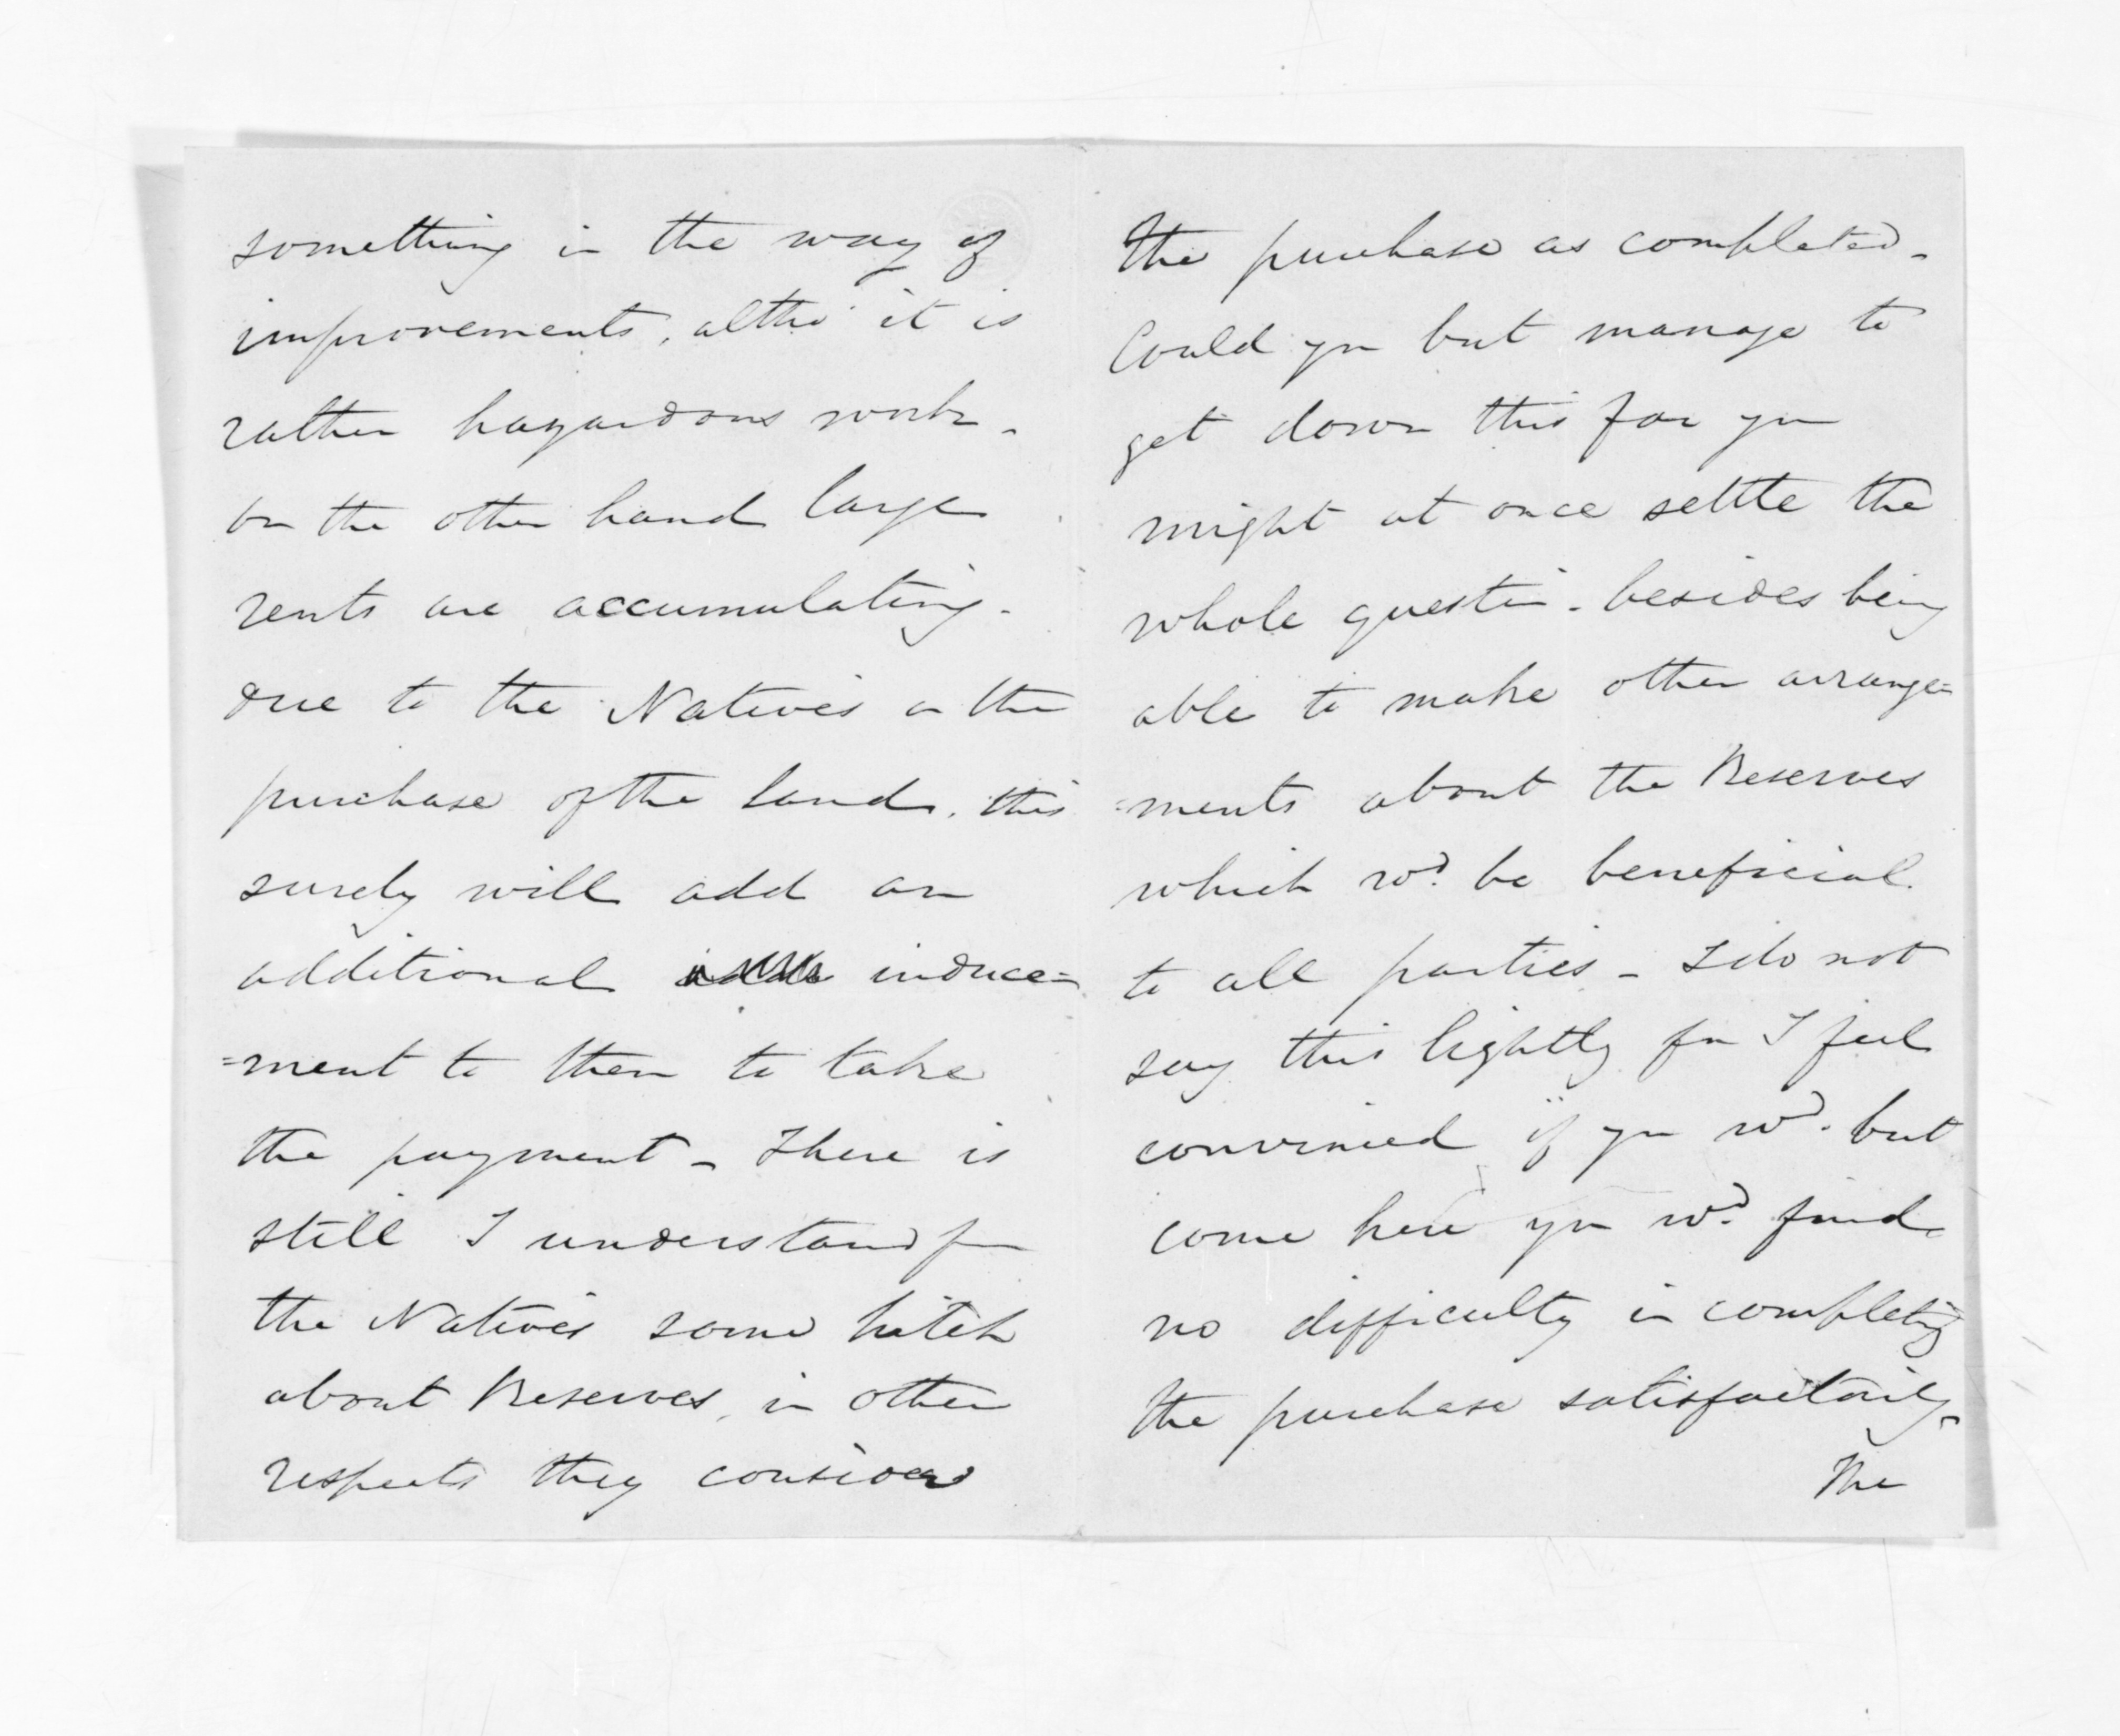 something in the way of
improvements, altho' it is
rather hazardous work -
on the other hand large
rents are accumulating -
due to the Natives on the
purchase of the land, this
surely will add an
additional induce=
=ment to them to take
the payment - There is
still I understand fm
the Natives some hitch
about Reserves, in other
respects they consider
the purchase as completed -
Could you but manage to
get down this far you
might at once settle the
whole question - besides being
able to make other arrange=
=ments about the Reserves
which wd. be beneficial
to all parties - I do not
say this lightly for I feel
convinced if you wd. but
come here you wd. find
no difficulty in completing
the purchase satisfactorily -
The